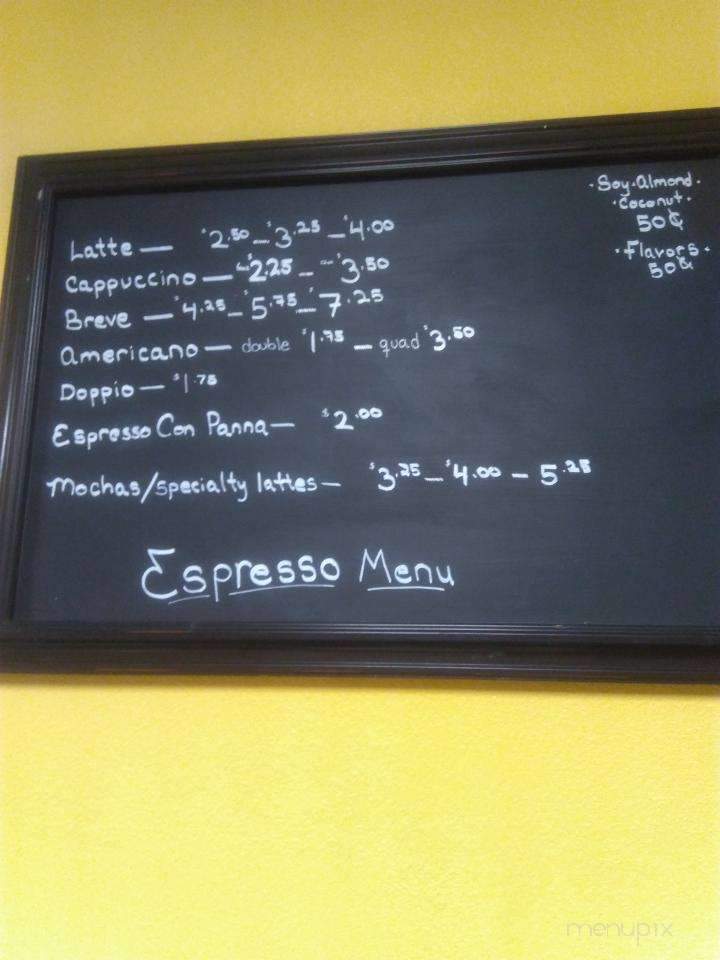 Latte — $2.50 — $3.25 — $4.00
Cappuccino — $2.25 — $3.50
Breve — $4.25 — $5.75 — $7.25
Americano — double $1.75 — quad $3.50
Doppio — $1.75
Espresso Con Panna — $2.00
Mochas/specialty lattes — $3.25 — $4.00 — 5.25
Espresso Menu
·Soy·Almond·
·Coconut·
50¢
·Flavors·
50¢
menupix